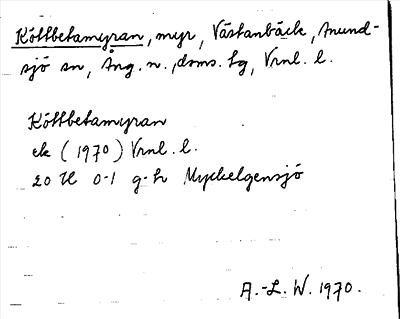 Köttbetamyran, myr, Västanbäck, Anund-
sjö sn, Ång. n., doms. tg, Vrnl. l.
Köttbetamyran
ek (1970) Vrnl. l.
20 H 0-1 g-h Myckelgensjö
A.-L. W. 1970.